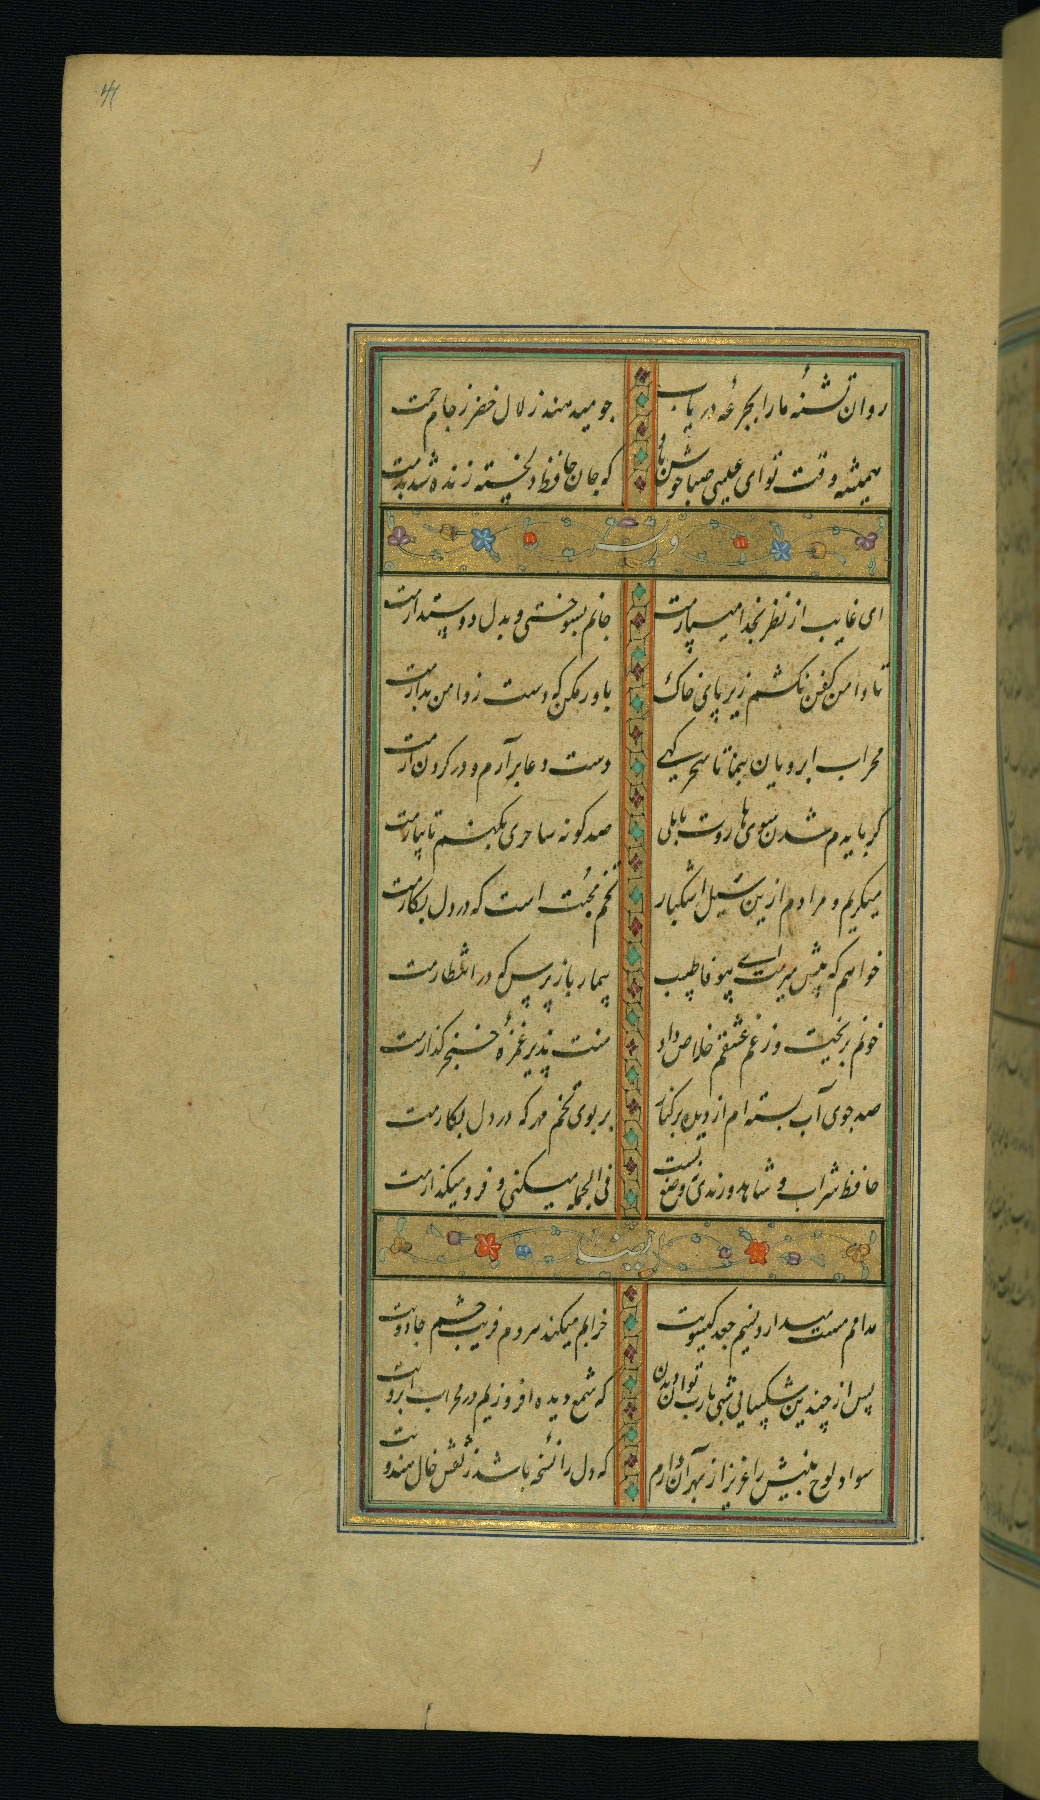 روان تشنهٔ ما را بجرعهٔ دریاب چو میدهند زلال خضر ز جام جمت
همیشه وقت تو ای عیسی صبا خوش باد که جان حافظ دلخسته زنده شد بدمت
وله
ای غایب از نظر بخدا میسپارمت جانم بسوختی و بدل دوستدارمت
تا دامن کفن نکشم زیر پای خاک باور مکن که دست ز دامن بدارمت
محراب ابرویان بنما تا سحرگهی دست دعا برآرم و در گردن آرمت
گر بایدم شدن سوی هاروت بابلی صد کونه ساحری بکنم تا بیارمت
میگریم و مرادم ازین سیل اشکبار تخم محبت است که در دل بکارمت
خواهم که پیش میرمت ای بیوفا طبیب بیمار باز پرس که در انتظارمت
خونم بریخت و ز غم عشقم خلاص داد منت پذیر غمزهٔ خنجر گذارمت
صد جوی آب بسته‌ام از دیده بر کنار بر بوی تخم مهر که در دل بکارمت
حافظ شراب و شاهد و رندی نه وضع تست فی الجمله میکنی و فرو میگذارمت
ایضا
مدامم مست میدارد نسیم جعد گیسویت خرابم میکند هردم فریب چشم جادویت
پس از چندین شکیبائی شبی یارب توان دیدن که شمع دیده افروزیم در محراب ابرویت
سواد لوح بینش را عزیز از بهر آن دارم که دل را نسخه باشد ز نقش خال هندویت